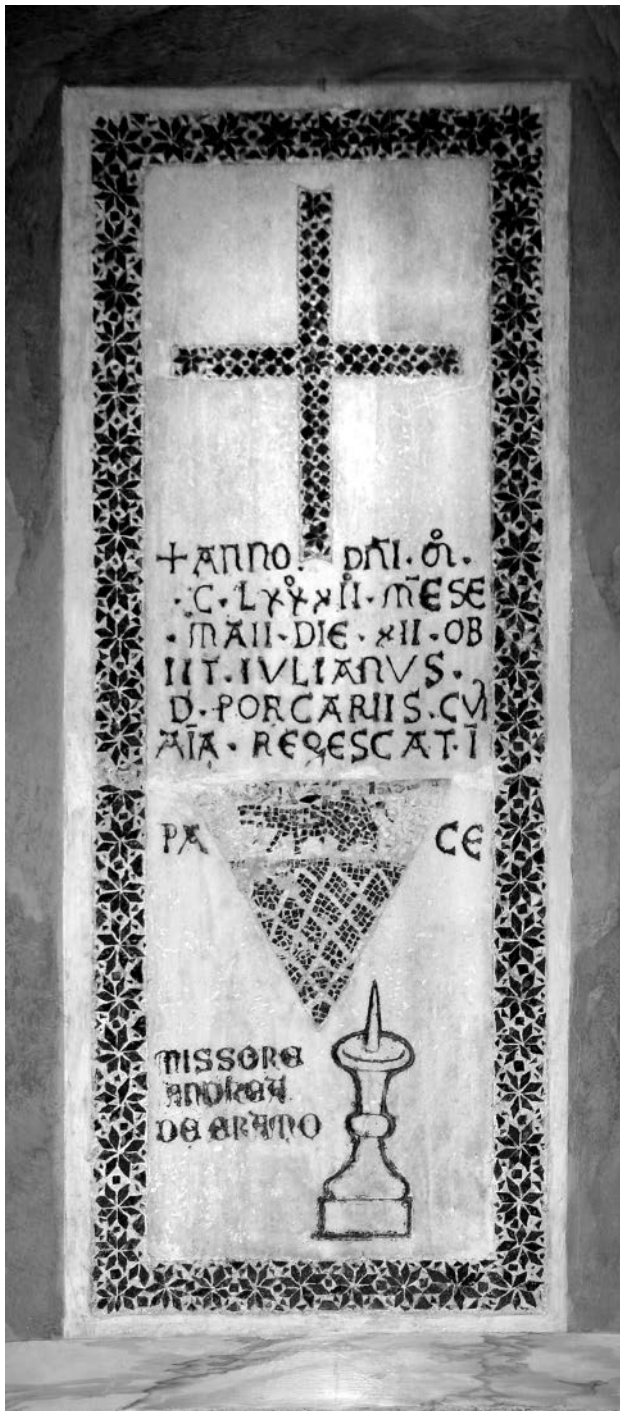 +ANNO. DN̄I. M̊.
·C·LXX̊XII̊·M̄ESE
·MAII·DIE·XII·OB
IIT·IVLIANVS·
D·PORCARIIS·CVI
AĪA·REQESCAT·Ī
PA CE
MISSORE
ANDREA
DE